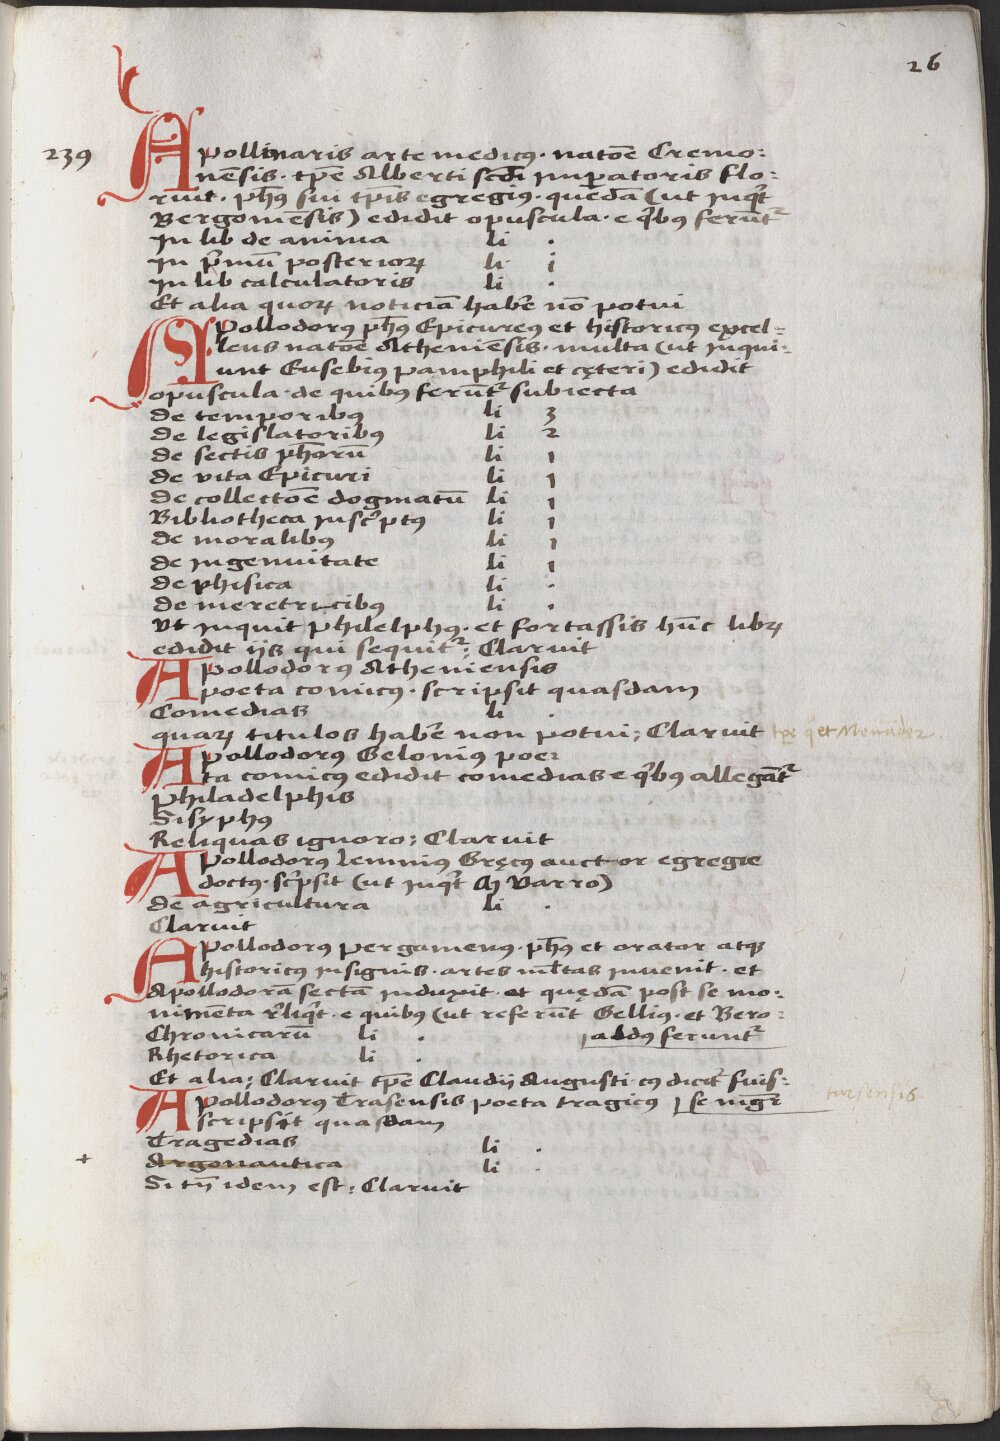 26
239
Apollinaris arte medicꝰ · natōe Cremo:
nēsis · tp̄e Alberti scd̄i imꝑatoris flo:
ruit · ph̄ꝰ sui tp̄is egregiꝰ · quedā (ut inq̇t
Bergomēsis) edidit opuscula · e q̇bꝰ ferūt᷑
In lib de anima li ·
In pͥmū posteriorꝝ li j
In lib calculatoris li ·
Et alia quorꝝ noticiā habē nō potui
Apollodorꝰ ph̄ꝰ Epicureꝰ et historicꝰ excel:
lens natōe Atheniēsis · multa (ut inqui:
unt Eusebiꝰ pamphili et cęteri) edidit
opuscula · de quibꝰ ferūt᷑ subiecta
de temporibꝰ li 3
de legislatoribꝰ li 2
de sectis ph̄orū li 1
de vita Epicuri li 1
de collectōe dogmatū li 1
Bibliotheca inscͥptꝰ li 1
de moralibꝰ li 1
de ingenuitate li 1
de phisica li ·
de meretricibꝰ li ·
Vt inquit philelphꝰ · et fortassis hūc librꝝ
edidit ijs qui sequit᷑; Claruit
Apollodorꝰ Atheniensis
poeta comicꝰ · scripsit quasdam
Comedias li ·
quarꝝ titulos habē non potui; Claruit tp̄e q̊ et Menāder
Apollodorꝰ Geloniꝰ poe:
ta comicꝰ edidit comedias e q̇bꝰ allegāt᷑
philadelphis
Sisyphꝰ
Reliquas ignoro; Claruit
Apollodorꝰ Lemniꝰ Gręcꝰ auctor egregie
doctꝰ · scͥpsit (ut inq̇t M Varro)
de agricultura li ·
Claruit
Apollodorꝰ pergamenꝰ · ph̄ꝰ et orator atqꝫ
historicꝰ insignis · artes ml̄tas inuenit · et
Apollodorā sectā induxit · et quędā post se mo:
nimēta rͤliq̇t · e quibꝰ (ut referūt Gelliꝰ · et Bero:
Chronicarū li · aldꝰ ferunt᷑
Rhetorica li ·
Et alia; Claruit tp̄e Claudij Augusti · cꝰ dicit᷑ fuis:
Apollodorꝰ Trasensis poeta tragicꝰ se
scripsit quasdam
Tragedias li ·
+ Argonautica li ·
Si tn̄ idem est; Claruit